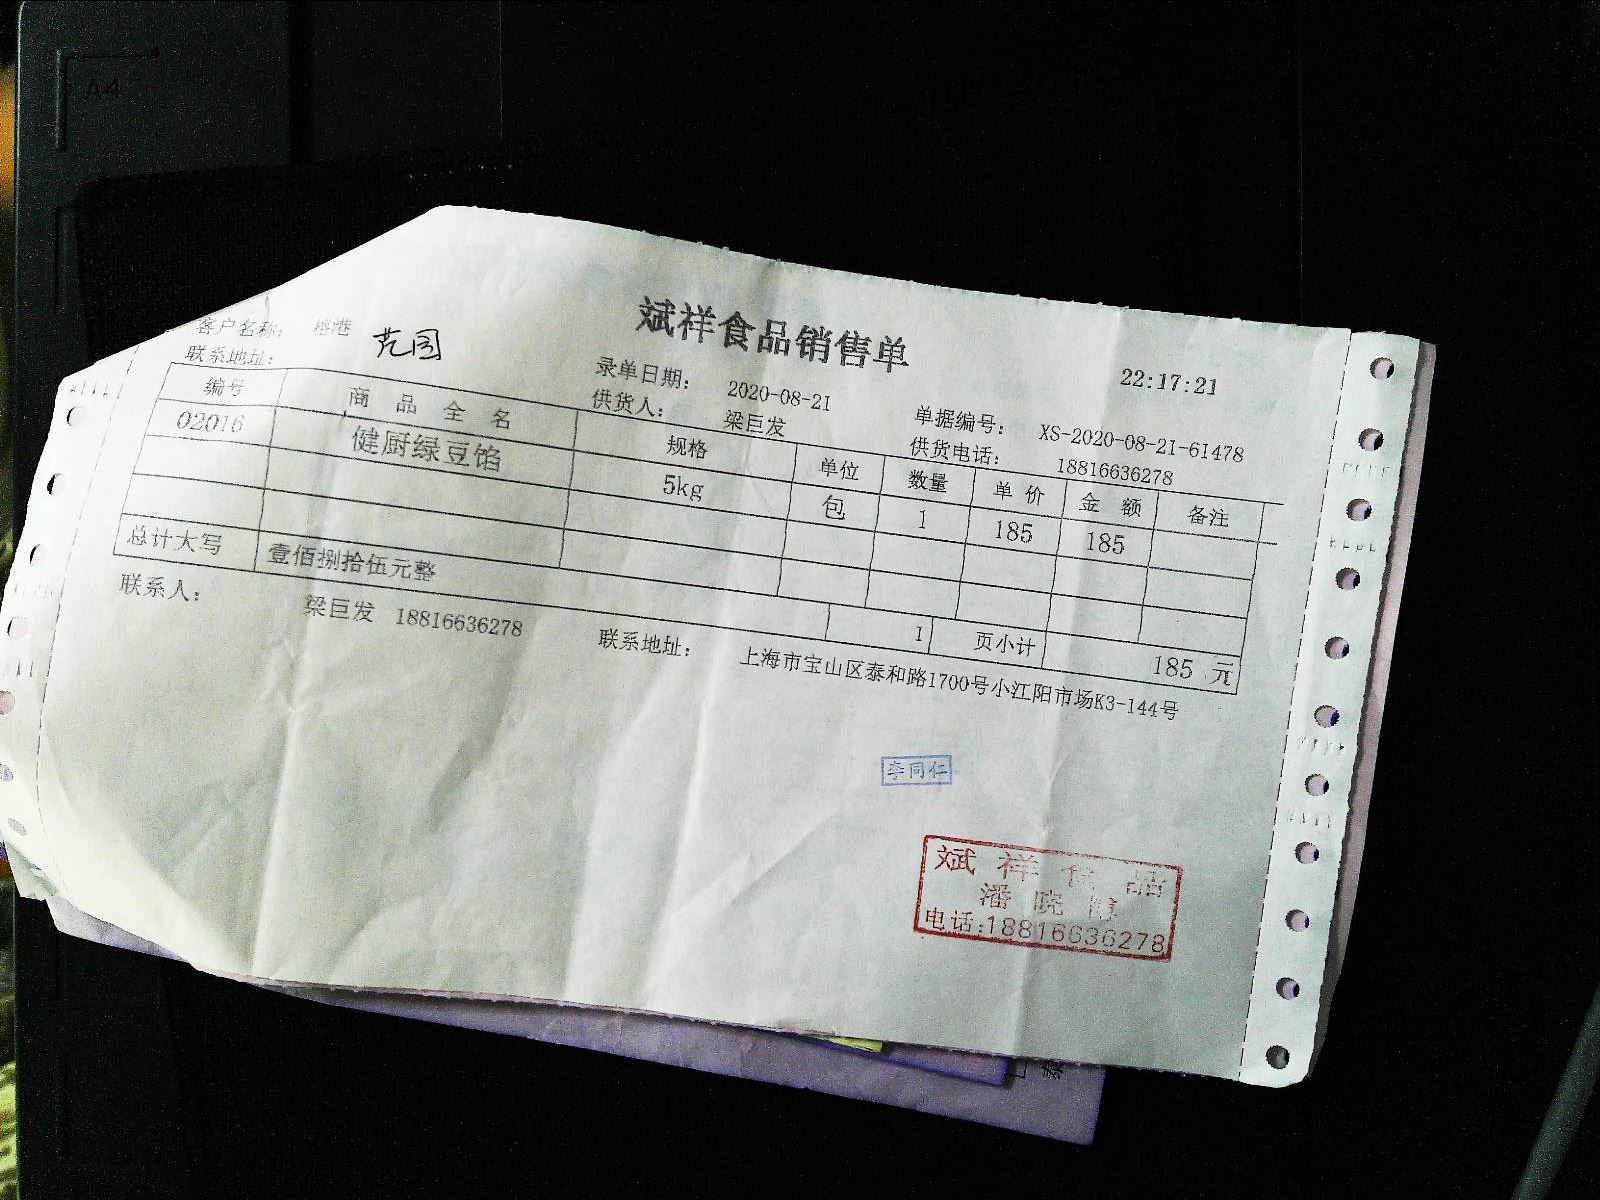 A4
斌祥食品销售单
22:17:21
客户名称： 榕港
范园
联系地址：
录单日期： 2020-08-21
单据编号： XS-2020-08-21-61478
供货人： 梁巨发
供货电话： 18816636278
编号 商品全名 规格 单位 数量 单价 金额 备注
02016 健厨绿豆馅 5kg 包 1 185 185
总计大写 壹佰捌拾伍元整 1 页小计 185 元
联系人： 梁巨发 18816636278 联系地址： 上海市宝山区泰和路1700号小江阳市场K3-144号
李同仁
斌祥食品
潘晓
电话:18816636278